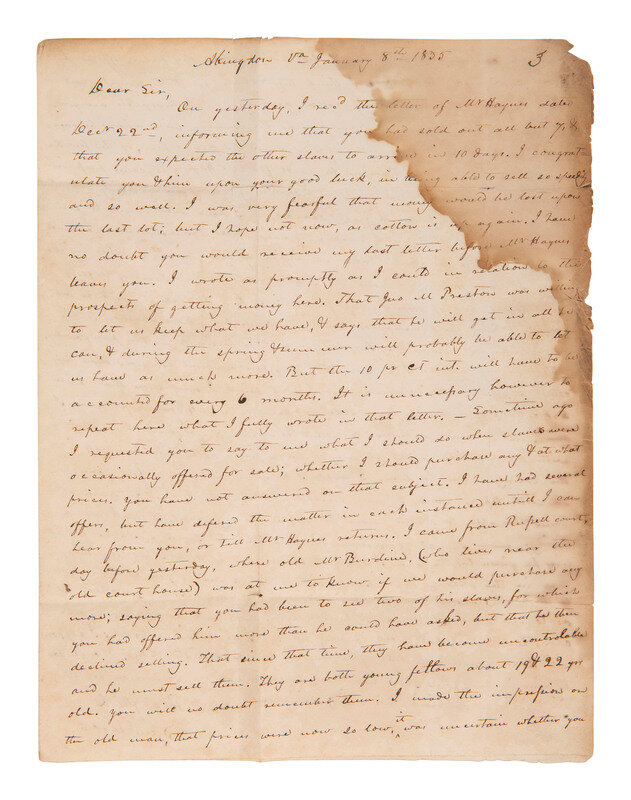 Abingdon Va January 8th 1835
3
Dear Sir,
On yesterday, I recd the letter of Mr Haynes date
Decr 22nd, informing me that you had sold out all but 7, &
that you expected the other slaves to arrive in 10 days. I congrat
ulate you & him upon your good luck, in being able to sell so speedily
and so well. I was very fearful that money would be lost upon
the last lot; but I hope not now, as cotton is up again. I have
no doubt you would receive my last letter before Mr Haynes
leaves you. I wrote as promptly as I could in relation to the
prospects of getting money here. That Jno M Preston was willing
to let us keep what we have, & says that he will get in all he
can, & during the spring & summer will probably be able to let
us have as much more. But the 10 pr ct int. will have to be
accounted for every 6 months. It is unnecessary however to
repeat here what I fully wrote in that letter. — Sometime ago
I requested you to say to me what I should do when slaves were
occasionally offered for sale; whether I should purchase any & at what
prices. you have not answered on that subject. I have had several
offers, but have defered the matter in each instance untill I can
hear from you, or till Mr Haynes returns. I came from Russell court,
day before yesterday, where old Mr Burdine, (who lives near the
old court house) was at me to know if we would purchase any
more; saying that you had been to see two of his slaves, for which
you had offered him more than he could have asked, but that he then
declined selling. That since that time, they have become uncontrolable
and he must sell them. They are both young fellows about 19 & 22 yrs
old. you will no doubt remember them. I made the impression on
the old man, that prices were now so low, it was uncertain whether you